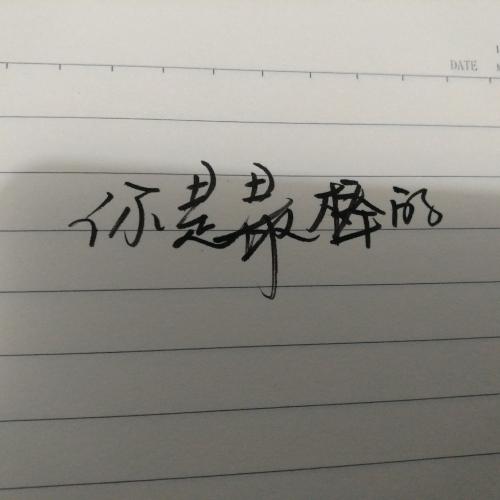 DATE
你是最棒的